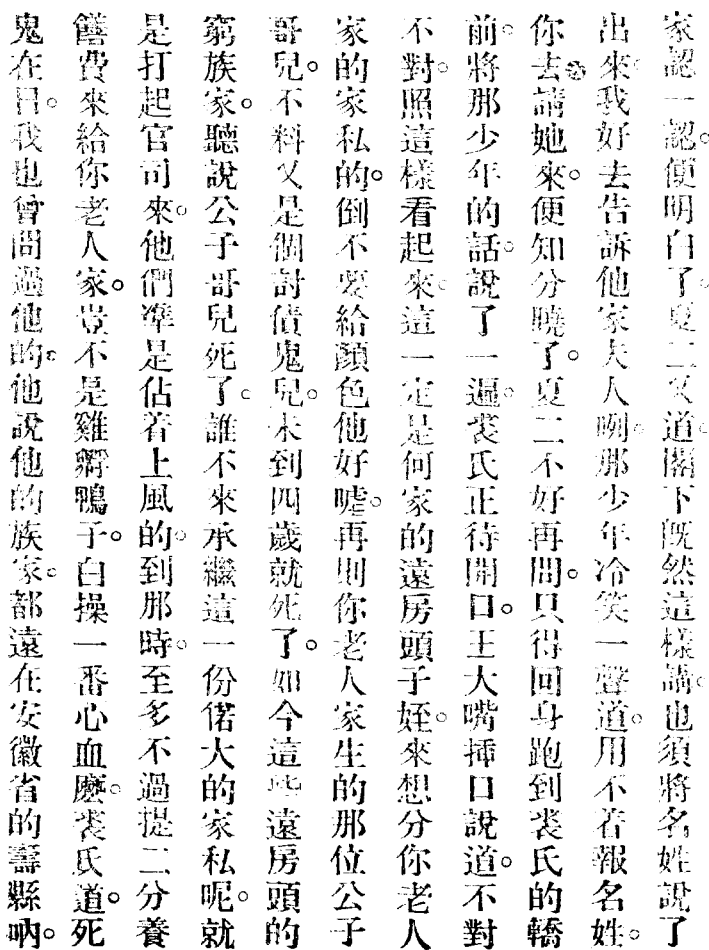 家認一認。便明白了。夏二又道。閣下既然這樣講。也須將名姓說了
出來。我好去告訴他家大人咧。那少年冷笑一聲道。用不着報名姓。
你去請她來。便知分曉了。夏二不好再問。只得回身跑到裘氏的轎
前。將那少年的話。說了一遍。裘氏正待開口。王大嘴挿口說道。不對
不對。照這樣看起來。這一定是何家的遠房頭子姪。來想分你老人
家的家私的。倒不要給顏色他好嘘。再則你老人家生的那位公子
哥兒。不料又是個討債鬼兒。未到四歲就死了。如今這些遠房頭的
窮族家。聽說公子哥兒死了。誰不來承繼這一份偌大的家私呢。就
是打起官司來。他們準是佔着上風的。到那時。至多不過提二分養
饍費來給你老人家。豈不是雞孵鴨子。白操一番心血麽。裘氏道。死
鬼在日。我也曾問過他的。他說他的族家。都遠在安徽省的壽縣吶。